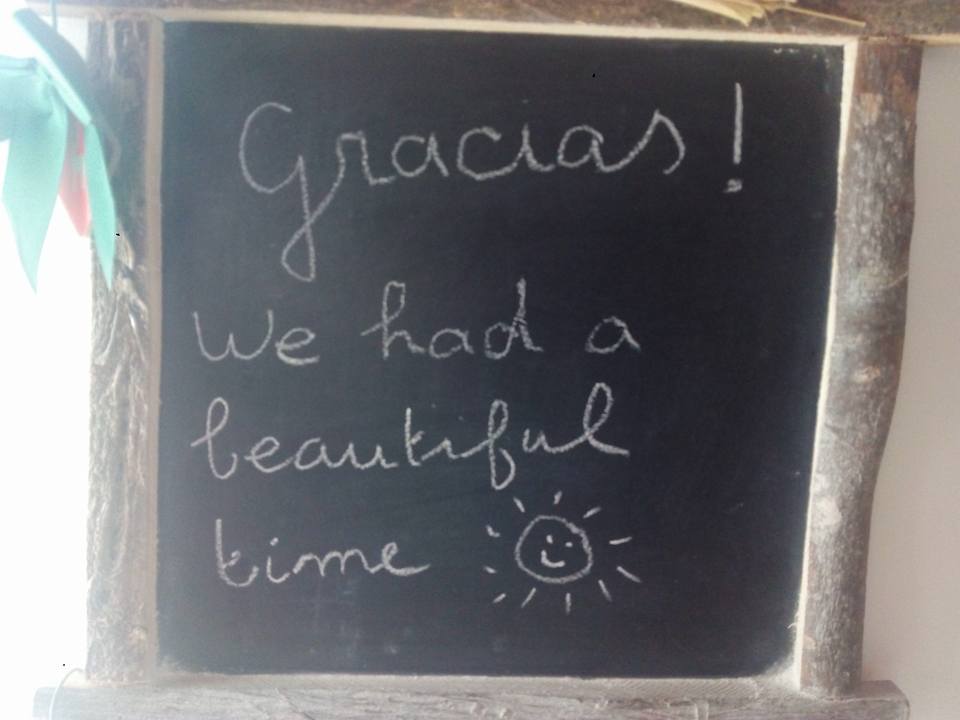 Gracias!
We had a
beautiful
time